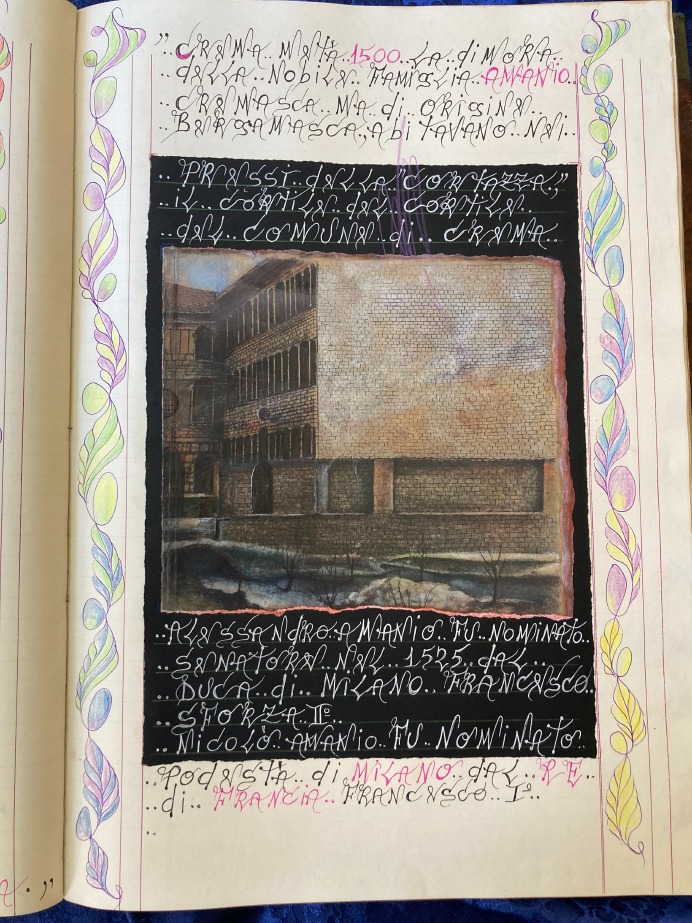 " CREMA.. METÀ..1500..LA..diMORA..
..dELLA..NobiLE..FAMiGLiA..AMANiO..
..CREMASCA..MA..di..ORiGiNE..
..BERGAMASCA,,AbiTAVANO..NEi..
..PRESSi..dELLA.."CORTAZZA,,"
..iL..CORTiLE..dEL..CORTiLE..
..dEL..COMUNE..di..CREMA..
..ALESSANdRO..AMANiO..FU..NOMiNATO..
..SENATORE..NEL..1525..dAL..
..DUCA..di..MiLANO..FRANCESCO..
..SFORZA..IIº..
..NiCOLÒ..AMANiO..FU..NOMiNATO..
..PODESTÀ..di..MiLANO..dAL..RE..
..di..FRANCiA..FRANCESCO..Iº..
..
. "